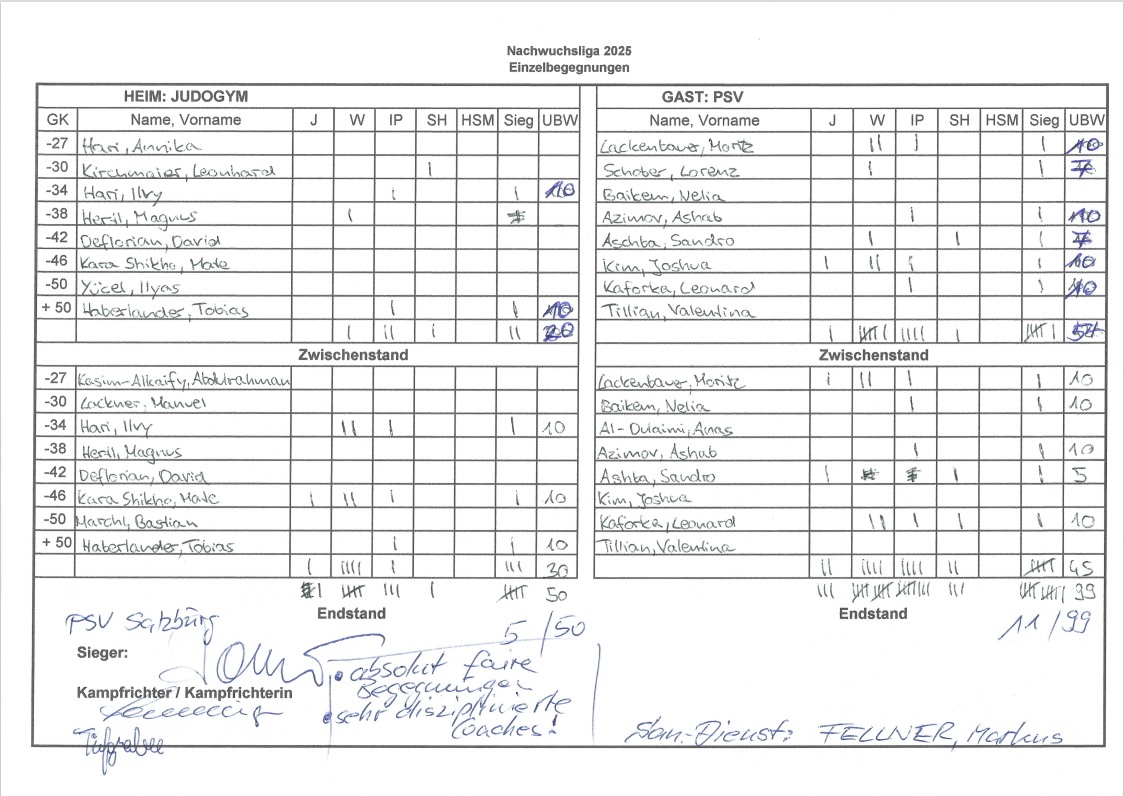 Nachwuchsliga 2025
Einzelbegegnungen
HEIM: JUDOGYM GAST: PSV
GK Name, Vorname J W IP SH HSM Sieg UBW Name, Vorname J W IP SH HSM Sieg UBW
-27 Hari, Annika Lackenbauer, Moritz II I I 10
-30 Kirchmaier, Leonhard I Schober, Lorenz I I 7
-34 Hari, Ilvy I I 10 Baikem, Nelia
-38 Heril, Magnus I Azimov, Ashab I I 10
-42 Deflorian, David Aschba, Sandro I I I 7
-46 Kara Shikho, Mate Kim, Joshua I II I I 10
-50 Yücel, Ilyas Kaforka, Leonard I I 10
+ 50 Haberlander, Tobias I I 10 Tillian, Valentina
I II I II 20 I IIIII I IIII I IIIII I 54
Zwischenstand Zwischenstand
-27 Kasim-Alkaify, Abdulrahman Lackenbauer, Moritz I II I I 10
-30 Lackner, Manuel Baikem, Nelia I I 10
-34 Hari, Ilvy II I I 10 Al-Dulaimi, Anas
-38 Heril, Magnus Azimov, Ashab I I 10
-42 Deflorian, David Ashba, Sandro I I I 5
-46 Kara Shikho, Mate I II I I 10 Kim, Joshua
-50 Marchl, Bastian Kaforka, Leonard II I I I 10
+ 50 Haberlander, Tobias I I 10 Tillian, Valentina
I IIII III III 30 II IIII IIII II IIIII 45
I IIIII III I IIIII 50 III IIIII IIIII III 99
Endstand Endstand
PSV Salzburg 5/50 11/99
Sieger:
• absolut faire
Begegnungen
Kampfrichter / Kampfrichterin
• sehr disziplinierte
Coaches!
San-Dienst: FELLNER, Markus